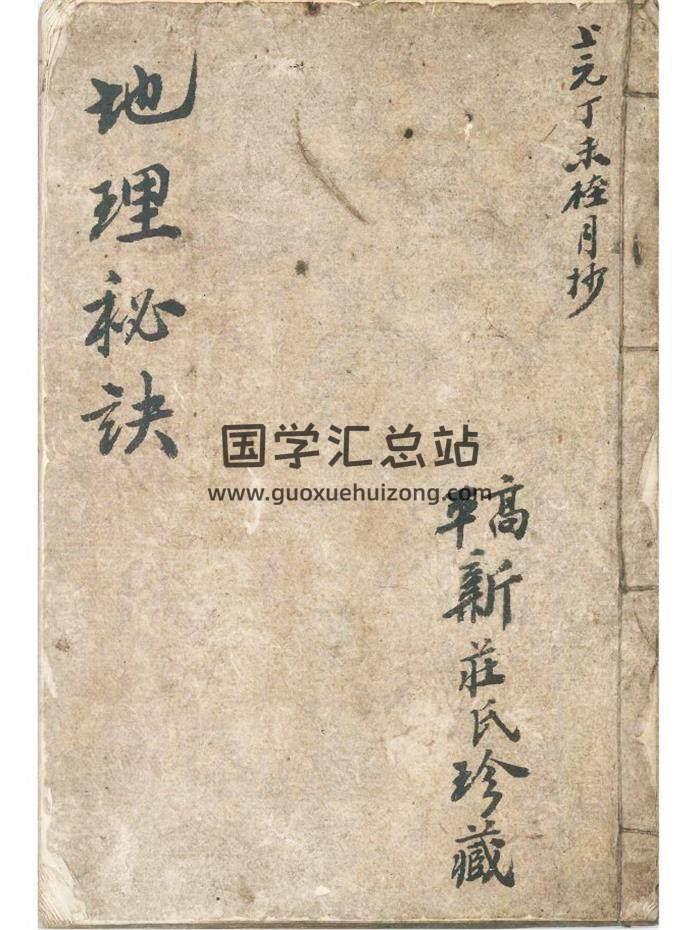 上元丁未桂月抄
高平
新莊氏珍藏
地理秘訣
国学汇总站
www.guoxuehuizong.com